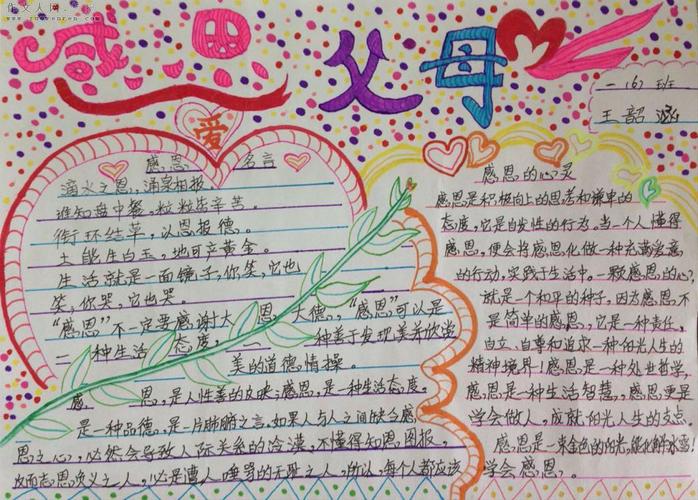 感恩父母
一(6)班
王韶涵
爱
感恩 名言
滴水之恩,涌泉相报
谁知盘中餐,粒粒皆辛苦。
衔环结草,以恩报德。
土能生白玉,地可产黄金。
生活就是一面镜子,你笑,它也
笑,你哭,它也哭。
“感恩”不一定要感谢大恩大德,“感恩”可以是
一种生活态度,一种善于发现美并欣赏
美的道德情操。
感恩,是人性善的反映;感恩,是一种生活态度,
是一种品德,是一片肺腑之言。如果人与人之间缺乏感
恩之心,必然会导致人际关系的冷漠,不懂得知恩图报,
反而忘恩负义之人,必是遭人唾骂的无耻之人,所以,每个人都应该
学会感恩。
感恩的心灵
感恩是积极向上的思考和谦卑的
态度,它是自发性的行为。当一个人懂得
感恩,便会将感恩化做一种充满爱意
的行动,实践于生活中。一颗感恩的心,
就是一个和平的种子,因为感恩,不
是简单的感恩,它是一种责任,
自立、自尊和追求一种阳光人生的
精神境界!感恩是一种处世哲学,
感恩是一种生活智慧,感恩更是
学会做人,成就阳光人生的支点。
感恩是一束金色的阳光,能化解冰雪!